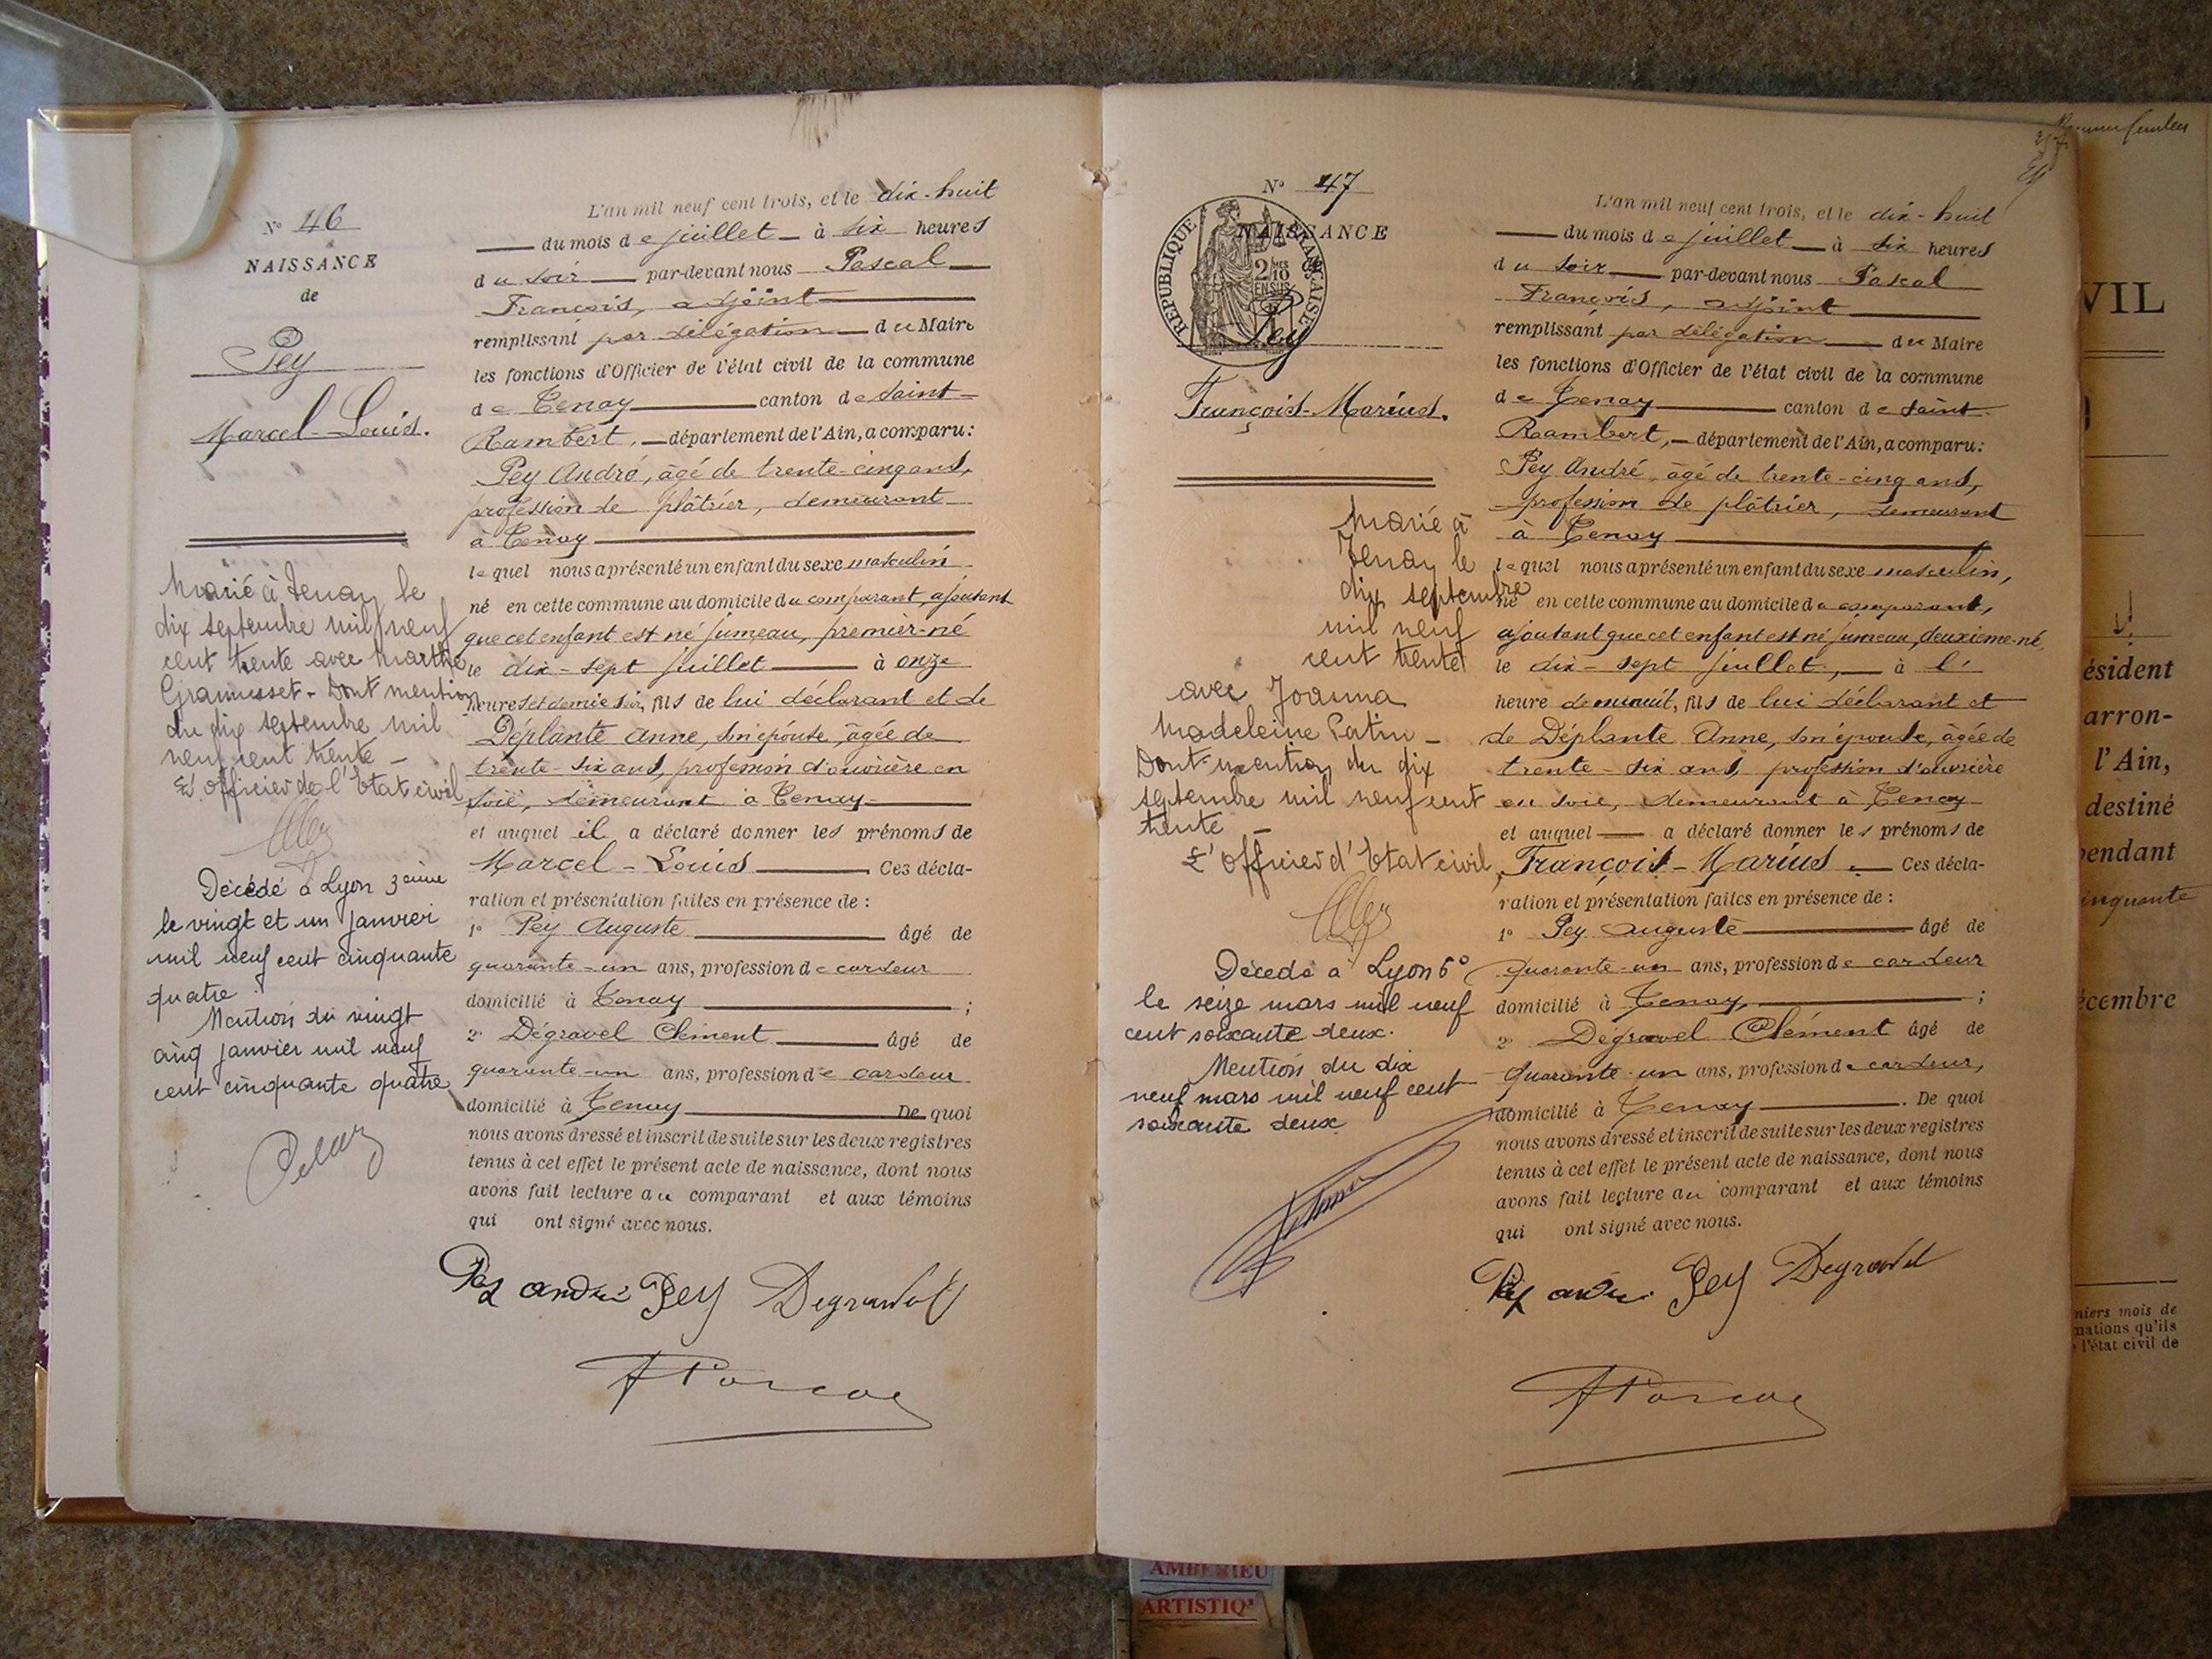 N° 46
NAISSANCE
de
Pey
Marcel-Louis.
Marié à Tenay le
dix septembre mil neuf
cent trente avec Marthe
Dont mention
du dix septembre mil
neuf cent trente
L'officier de l'Etat civil
Décédé à Lyon 3eme
le vingt et un Janvier
mil neuf cent cinquante
quatre.
Mention du vingt
cinq janvier mil neuf
cent cinquante quatre
L'an mil neuf cent trois, et le dix-huit
du mois de juillet à six heures
du soir par-devant nous Pascal
François, adjoint
remplissant par délégation du Maire
les fonctions d'Officier de l'état civil de la commune
de Tenay canton de Saint-
Rambert, département de l'Ain, a comparu:
Pey André, âgé de trente-cinq ans,
profession de plâtrier, demeurant
à Tenay
lequel nous a présenté un enfant du sexe masculin
né en cette commune au domicile du comparant, ajoutant
que cet enfant est né jumeau, premier-né
le dix-sept juillet à onze
heures et demie soir, fils de lui déclarant et de
Déplante Anne, son épouse, âgée de
trente-six ans, profession d'ouvrière en
soie, demeurant à Tenay
et auquel il a déclaré donner les prénoms de
Marcel-Louis Ces décla-
ration et présentation faites en présence de :
1° Pey Auguste âgé de
quarante-un ans, profession de cardeur
domicilié à Tenay ;
2° Dégravel Clément âgé de
quarante-un ans, profession de cardeur
domicilié à Tenay De quoi
nous avons dressé et inscrit de suite sur les deux registres
tenus à cet effet le présent acte de naissance, dont nous
avons fait lecture au comparant et aux témoins
qui ont signé avec nous.
Pey andré Pey Degravel
FPascal
N° 47
NAISSANCE
de
REPUBLIQUE FRANÇAISE
2/10
EN SUS
Pey
François-Marius.
Marié à
Tenay le
dix septembre
mil neuf
cent trente
avec Joanna
Madeleine Patin
Dont mention du dix
septembre mil neuf cent
trente
L'officier d'Etat civil,
Décédé à Lyon 6°
le seize mars mil neuf
cent soixante deux.
Mention du dix
neuf mars mil neuf cent
soixante deux
L'an mil neuf cent trois, et le dix-huit
du mois de juillet à six heures
du soir par-devant nous Pascal
François, adjoint
remplissant par délégation du Maire
les fonctions d'Officier de l'état civil de la commune
de Tenay canton de Saint-
Rambert, département de l'Ain, a comparu:
Pey André, âgé de trente-cinq ans,
profession de plâtrier, demeurant
à Tenay
lequel nous a présenté un enfant du sexe masculin,
né en cette commune au domicile du comparant,
ajoutant que cet enfant est né jumeau, deuxième-né,
le dix-sept juillet, à l'
heure de minuit, fils de lui déclarant et
de Déplante Anne, son épouse, âgée de
trente-six ans, profession d'ouvrière
en soie, demeurant à Tenay
et auquel a déclaré donner les prénoms de
François-Marius. Ces décla-
ration et présentation faites en présence de :
1° Pey Auguste âgé de
quarante-un ans, profession de cardeur
domicilié à Tenay, ;
2° Dégravel Clément âgé de
quarante-un ans, profession de cardeur,
domicilié à Tenay . De quoi
nous avons dressé et inscrit de suite sur les deux registres
tenus à cet effet le présent acte de naissance, dont nous
avons fait lecture au comparant et aux témoins
qui ont signé avec nous.
Pey andré Pey Degravel
FPascal
VIL
ésident
arron-
l'Ain,
destiné
pendant
inquante
écembre
niers mois de
mations qu'ils
l'état civil de
AMBERIEU
ARTISTIQ